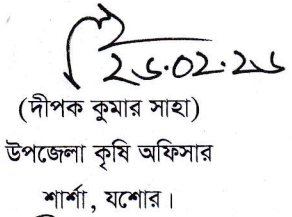 (দীপক কুমার সাহা)
উপজেলা কৃষি অফিসার
শার্শা, যশোর।